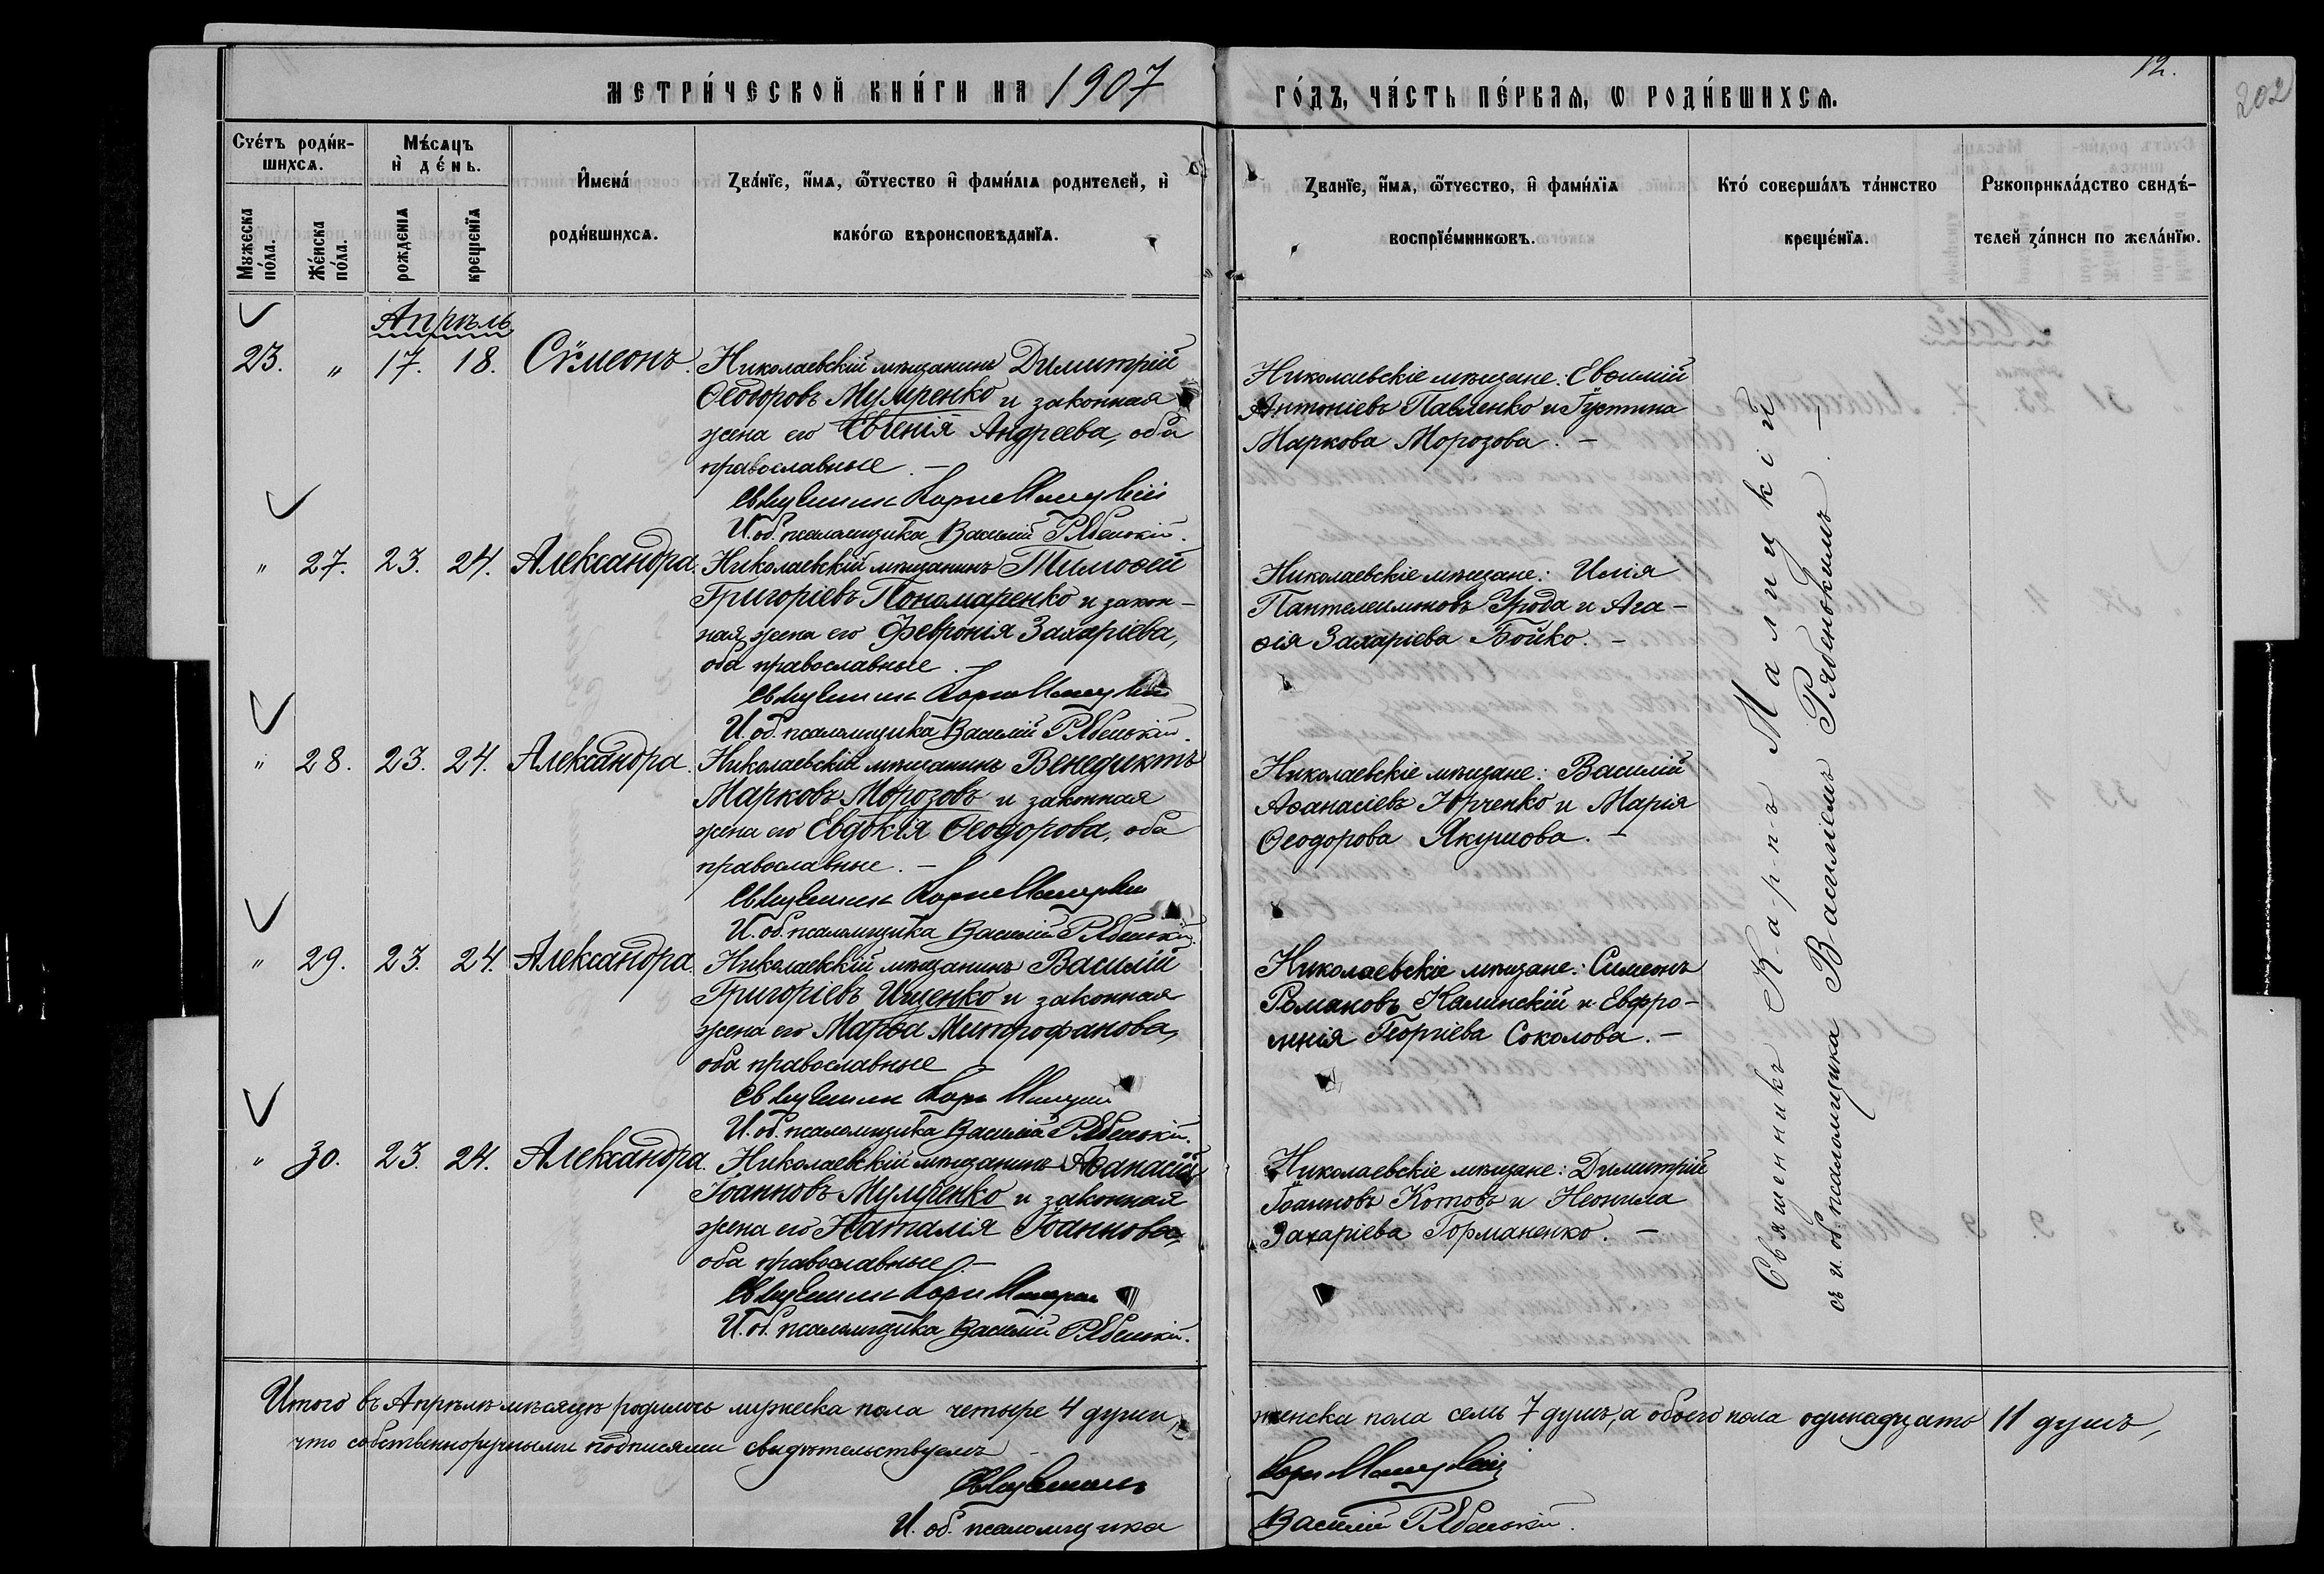 МЕТРИ́ЧЕСКОЙ КНИ́ГИ НА 1907
ГО́ДЪ, ЧА́СТЬ ПЕ́РВАѦ, Ѡ РОДИ́ВШИХСѦ.
12.
202
Счє́тъ роди́в-
шихсѧ.
Мѣ́сѧцъ
и҆ де́нь.
Мꙋжеска
по́ла.
Же́нска
по́ла.
рождєнїѧ
крещенїѧ
И҆мена́
роди́вшихсѧ.
Зва́нїе, и҆́мѧ, ѻ҆́тчество и҆ фами́лїѧ родителей, и҆
како́гѡ вѣроисповѣданїѧ.
Званїе, и҆́мѧ, ѻ҆́тчество, и҆ фами́лїѧ
воспрїе́мникѡвъ.
Кто́ соверша́лъ та́инство
креще́нїѧ.
Рꙋкоприкла́дство свидѣ́-
телей за́писи по жела́нїю.
Апрѣль
23. " 17. 18. Сѵмеонъ.
Николаевскій мѣщанинъ Димитрій
Ѳеодоровъ Мумренко и законная
жена его Евгенія Андреева, оба
православные. —
Священникъ Карпъ Малицкій
И. об. псаломщика Василій Рябенькій.
Николаевскіе мѣщане: Евѳимій
Антоніевъ Павленко и Іустина
Маркова Морозова. —
" 27. 23. 24. Александра.
Николаевскій мѣщанинъ Тимоѳей
Григоріевъ Пономаренко и закон-
ная жена его Февронія Захаріева,
оба православные. —
Священникъ Карпъ Малицкій
И. об. псаломщика Василій Рябенькій.
Николаевскіе мѣщане: Илія
Пантелеимоновъ и Ага-
ѳія Захаріева Бойко. —
" 28. 23. 24. Александра.
Николаевскій мѣщанинъ Венедиктъ
Марковъ Морозовъ и законная
жена его Евдокія Ѳеодорова, оба
православные. —
Священникъ Карпъ Малицкій
И. об. псаломщика Василій Рябенькій.
Николаевскіе мѣщане: Василій
Аѳанасіевъ Юрченко и Марія
Ѳеодорова Якушова. —
" 29. 23. 24. Александра.
Николаевскій мѣщанинъ Василій
Григоріевъ Ищенко и законная
жена его Марѳа Митрофанова,
оба православные —
Священникъ Карпъ Малицкій
И. об. псаломщика Василій Рябенькій.
Николаевскіе мѣщане: Симеонъ
Романовъ Калинскій и Евфро-
Георгіева Соколова. —
" 30. 23. 24. Александра.
Николаевскій мѣщанинъ Аѳанасій
Іоанновъ Мумренко и законная
жена его Наталія Іоаннова,
оба православные. —
Священникъ Карпъ Малицкій
И. об. псаломщика Василій Рябенькій.
Николаевскіе мѣщане: Димитрій
Іоанновъ Котовъ и Неонила
Захаріева Горманенко. —
Священникъ Карпъ Малицкій
съ и. об. псаломщика Василіемъ Рябенькимъ. —
Итого въ Апрѣлѣ мѣсяцѣ родилось мужеска пола четыре 4 души,
женска пола семь 7 душъ, а обоего пола одинадцать 11 душъ,
что собственноручными подписями свидѣтельствуемъ —
Священникъ Карпъ Малицкій
И. об. псаломщика Василій Рябенькій.